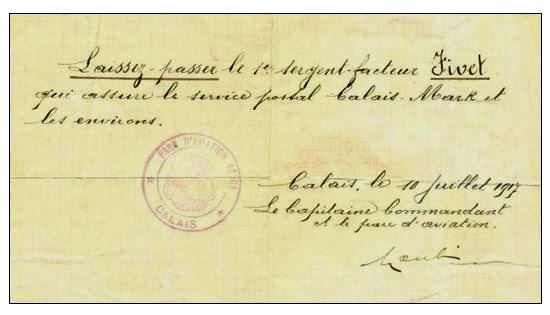 Laissez-passer le 1er sergent-facteur Fivet
qui assure le service postal Calais-Mark et
les environs.
PARC D'AVIATION
CALAIS
Calais, le 10 Juillet 1917
Le Capitaine Commandant
et le parc d'aviation.